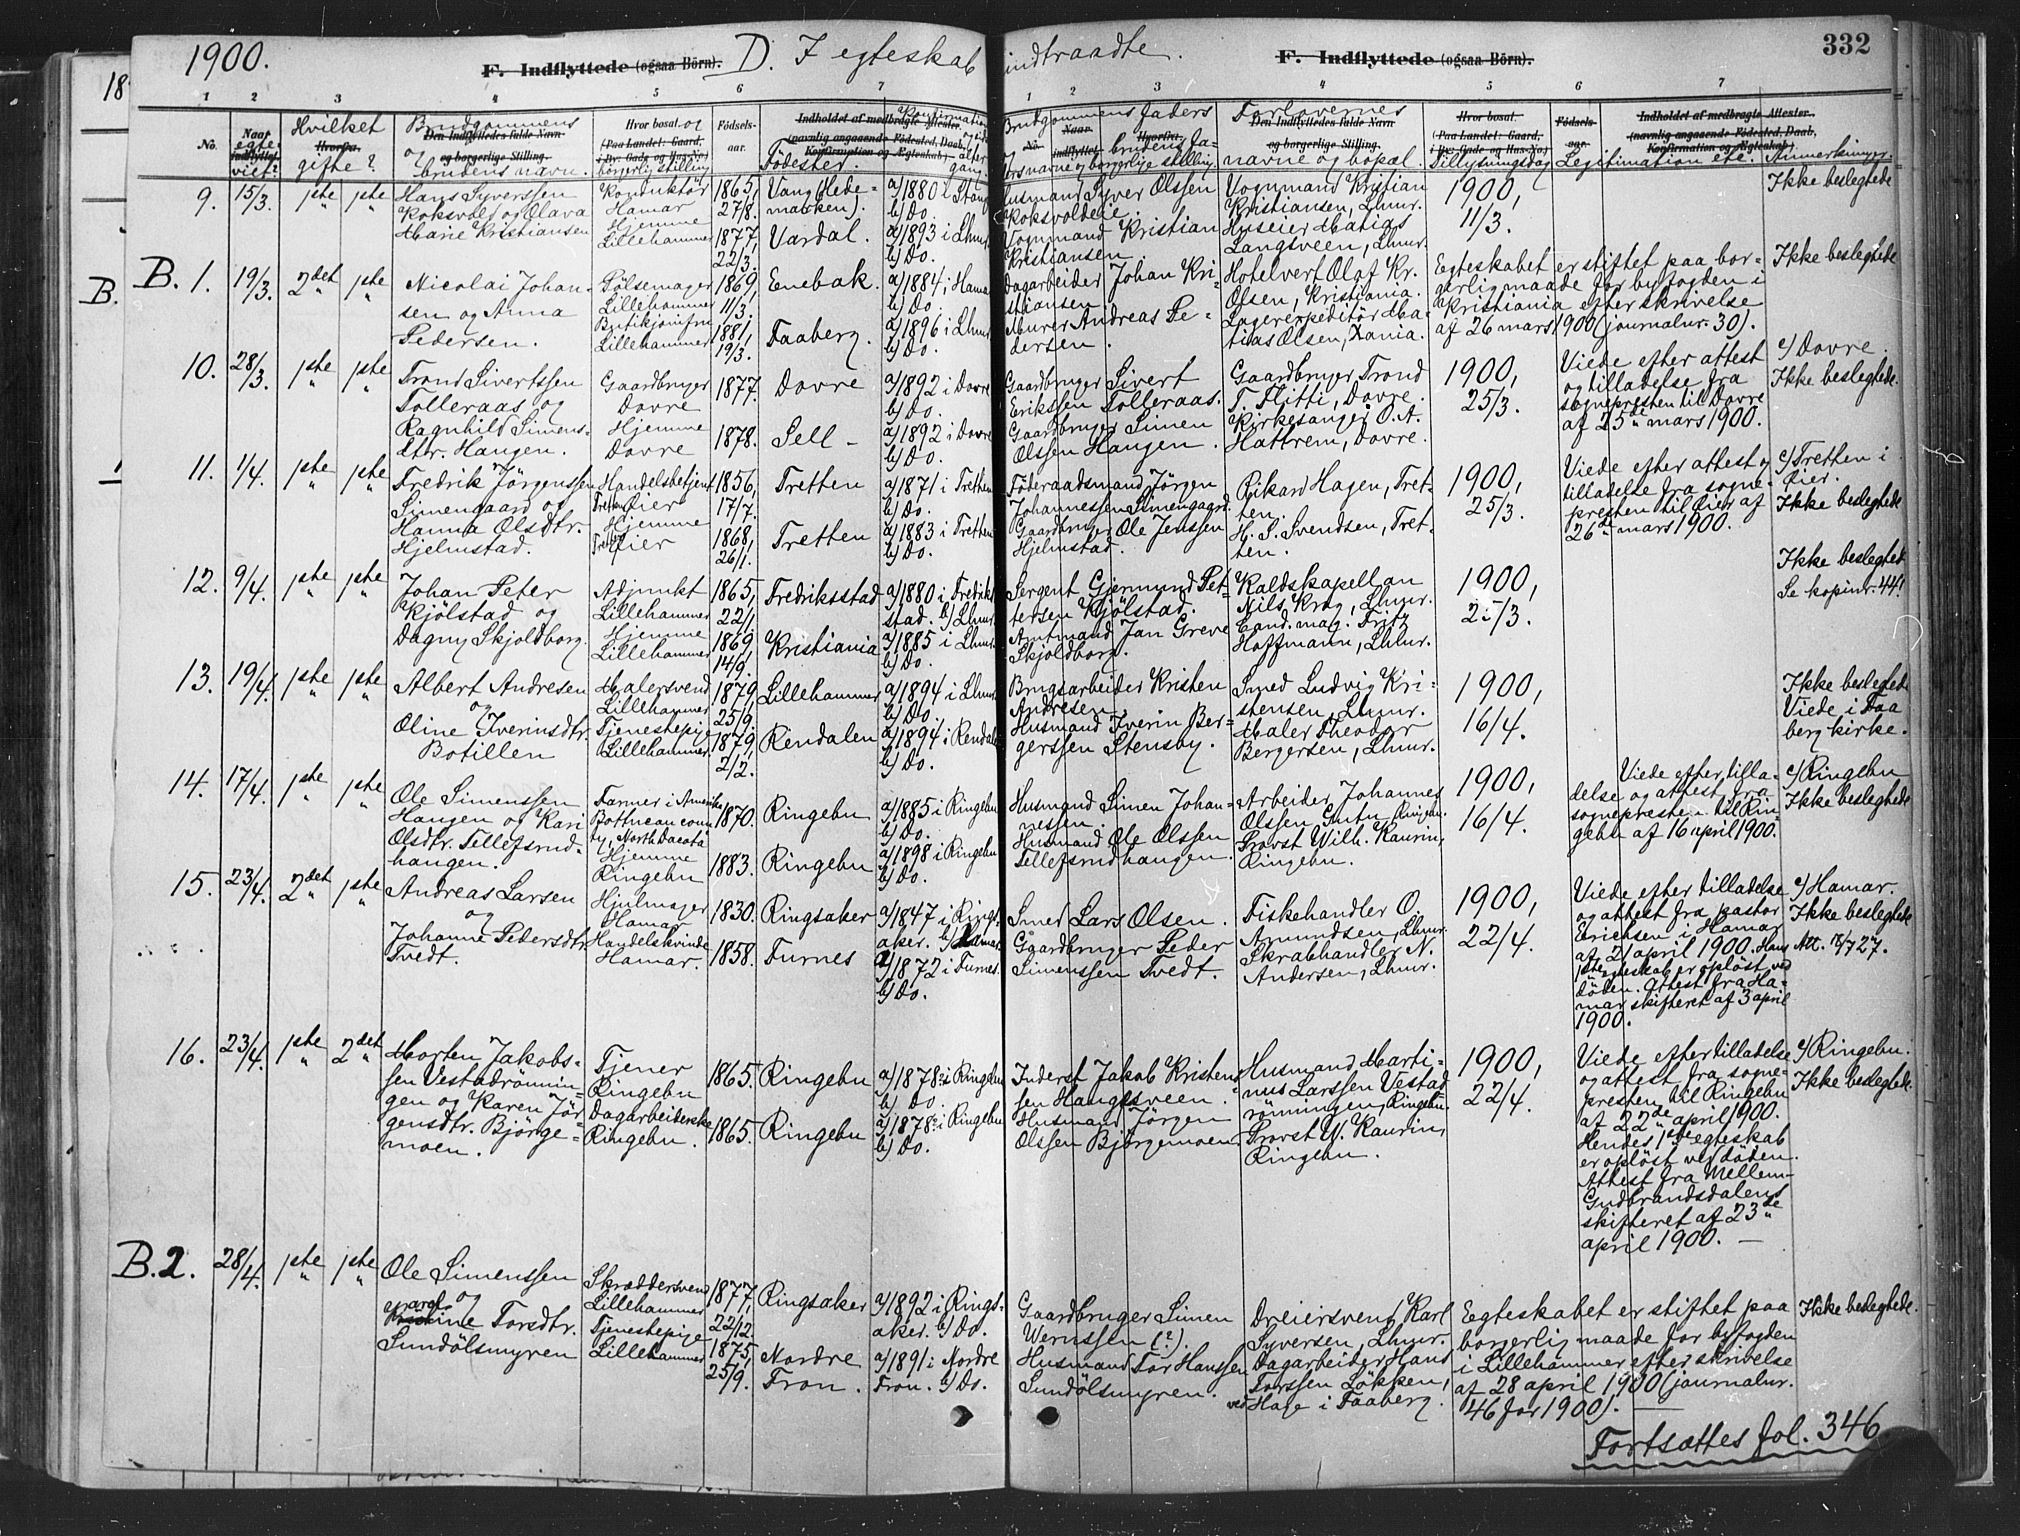 1900.
D. I egteskab indtraadte.
332
F. Indflyttede (ogsaa Börn).
F. Indflyttede (ogsaa Börn).
1 2 3 4 5 6 7
1 2 3 4 5 6 7
No.
Naar egteviet?
Hvilket gifte?
Brudgommens og brudens navn.
Hvor bosat og borgerlig stilling
Födselsaar.
Födested.
Brudgommens faders
brudens fa-
rs navne og borgerlige stilling
Forlovernes
navne og bopæl.
Tillysningsdag
Legitimation etc.
Anmerkninger.
9. 15/3. 1ste 1ste
Hans Syverssen
Koksvold og Olava
Marie Kristiansen
Konduktør
Hamar
Hjemme
Lillehammer
1865,
27/8.
1877,
22/3.
Vang (Hede-
marken).
Vardal.
a/1880 i Stange
b/ Do.
a/1893 i Lhmr.
b/ Do.
Husmand Syver Olssen
Koksvoldeie.
Vognmand Kristian
Kristiansen
Vognmand Kristian
Kristiansen, Lhmr.
Huseier Matias
Langsveen, Lhmr.
1900,
11/3.
Ikke beslegtede
B. 1. 19/3. 2det 1ste
Nicolai Johan-
sen og Anna
Pedersen.
Pölsemager
Lillehammer
Butikjomfru
Lillehammer
1869,
11/3.
1881,
19/3.
Enebak.
Faaberg.
a/1884 i Hamar
b/ Do.
a/1896 i Lhmr.
b/ Do.
Dagarbeider Johan Kri-
stiansen.
Murer Andreas Pe-
dersen.
Hotelvert Olaf Kr.
Olsen, Kristiania.
Lagerexpeditör Ma-
tias Olsen, Kania.
Egteskabet er stiftet paa bor-
gerlig maade for byfogden i
Kristiania efter skrivelse
af 26 mars 1900 (journalnr. 30).
Ikke beslegtede
10. 28/3. 1ste 1ste
Trond Sivertssen
Tolleraas og
Ragnhild Simens-
dtr. Haugen.
Gaardbruger
Dovre
Hjemme
Dovre
1877.
1878.
Dovre
Sell -
a/1892 i Dovre
b/ Do.
a/1892 i Dovre
b/ Do.
Gaardbruger Sivert
Erikssen Tolleraas.
Gaardbruger Simen
Olssen Haugen.
Gaardbruger Trond
T. Flitti, Dovre.
Kirkesanger O. A.
Hattrem, Dovre.
1900,
25/3.
Viede efter attest
og tilladelse fra
sognepresten til Dovre
af 25de mars 1900.
c/ Dovre.
Ikke beslegtede.
11. 1/4. 1ste 1ste
Fredrik Jörgenssen
Simengaard og
Hanna Olsdtr.
Hjelmstad.
Handelsbetjent
Tretten Öier
Hjemme
Tretten Öier
1856,
17/7.
1868,
26/1.
Tretten
Tretten
a/1871 i Tretten
b/ Do.
a/1883 i Tretten
b/ Do.
Föderaadsmand Jörgen
Johannessen Simengaard.
Gaardbruger Ole Jenssen
Hjelmstad.
Rikard Hagen, Tret-
ten.
H. S. Svendsen, Tret-
ten.
1900,
25/3.
Viede efter attest og
tilladelse fra sogne-
presten til Öier af
26de mars 1900.
c/ Tretten i
Öier.
Ikke beslegtede
12. 9/4. 1ste 1ste
Johan Peter
Kjölstad og
Dagny Skjoldborg.
Adjunkt
Lillehammer
Hjemme
Lillehammer
1865,
22/1.
1869,
14/9.
Fredriksstad
Kristiania
a/1880 i Fredrik-
stad. b/ Lhmr.
a/1885 i Lhmr.
b/ Do.
Sergent Gjermund Pet-
tersen Kjölstad.
Amtmand Jan Greve
Skjoldborg.
Kaldskapellan
Nils Krog, Lhmr.
Cand. mag. Fritz
Hoffmann, Lhmr.
1900,
25/3.
Ikke beslegtede
Se kopinr. 44!
13. 19/4. 1ste 1ste
Albert Andresen
og
Oline Iverinsdtr.
Botillen
Malersvend
Lillehammer
Tjenestepige
Lillehammer.
1879,
25/9.
1879,
2/2.
Lillehammer
Rendalen
a/1894 i Lhmr.
b/ Do.
a/1894 i Rendalen
b/ Do.
Brugsarbeider Kristen
Andresen.
Husmand Iverin Ber-
gerssen Stensby.
Smed Ludvig Kri-
stensen, Lhmr.
Maler Theodor
Bergersen, Lhmr.
1900,
16/4.
Ikke beslegtede
Viede i Faa
berg kirke.
14. 17/4. 1ste 1ste
Ole Simenssen
Haugen og Kari
Olsdtr. Tellefsrud-
haugen.
Farmer i Amerika
Bottneau coun-
ty, North Dacota
Hjemme
Ringebu
1870.
1883.
Ringebu
Ringebu
a/1885 i Ringebu
b/ Do.
a/1898 i Ringebu
b/ Do.
Husmand Simen Johan-
nessen.
Husmand Ole Olssen
Tellefsrudhaugen.
Arbeider Johannes
Olssen Gutu, Ringebu.
Provst Wilh. Kaurin,
Ringebu.
1900,
16/4.
Viede efter tilla-
delse og attest fra
sognepresten til Rin-
gebu af 16 april 1900.
c/ Ringebu
Ikke beslegtede
15. 23/4. 2det 1ste
Andreas Larsen
og
Johanne Pedersdtr.
Tvedt.
Hjulmager
Hamar
Handelskvinde
Hamar.
1830.
1858.
Ringsaker
Furnes
a/1847 i Rings-
aker. b/ Hamar
a/1872 i Furnes.
b/ Do.
Smed Lars Olsen.
Gaardbruger Peder
Simenssen Tvedt.
Fiskehandler O.
Amundsen, Lhmr.
Skrabhandler N.
Andersen, Lhmr.
1900,
22/4.
Viede efter tilladelse
og attest fra pastor
Erichsen i Hamar
af 21 april 1900. Hans
1ste egteskab er oplöst ved
döden. Attest fra Ha-
mar skifteret af 3 april
1900.
c/ Hamar.
Ikke beslegtede
Att. 18/7 27.
16. 23/4. 1ste 2det
Morten Jakobs-
sen Vestadrönnin-
gen og Karen Jör-
gensdtr. Björge-
moen.
Tjener
Ringebu
Dagarbeiderske
Ringebu.
1865.
1865.
Ringebu
Ringebu
a/1878 i Ringebu
b/ Do.
a/1878 i Ringebu
b/ Do.
Inderst Jakob Kristens-
sen Haugsveen.
Husmand Jörgen
Olssen Björgemoen.
Husmand Marti-
nus Larssen Vestad-
rönningen, Ringebu.
Provst W. Kaurin,
Ringebu.
1900,
22/4.
Viede efter tilladelse
og attest fra sogne-
presten til Ringebu
af 22de april 1900.
Hendes 1ste egteskab
er oplöst ved döden.
Attest fra Mellem-
Gudbrandsdalens
skifteret af 23de
april 1900. —
c/ Ringebu.
Ikke beslegtede.
B. 2. 28/4. 1ste 1ste
Ole Simenssen
og
Torsdtr.
Sundölsmyren
Skræddersvend
Lillehammer
Tjenestepige
Lillehammer
1877,
22/12.
1875,
25/9.
Ringsaker
Nordre
Fron.
a/1892 i Rings-
aker. b/ Do.
a/1891 i Nordre
Fron. b/ Do.
Gaardbruger Simen
Wernssen (?).
Husmand Tor Hanssen
Sundölsmyren.
Dreiersvend Karl
Syversen, Lhmr.
Dagarbeider Hans
Torssen Lökken,
ved Hage i Faaberg.
Egteskabet er stiftet paa
borgerlig maade for byfogden
i Lillehammer efter skrivelse
af 28 april 1900 (journalnr.
46 for 1900).
Ikke beslegtede.
Fortsættes fol. 346